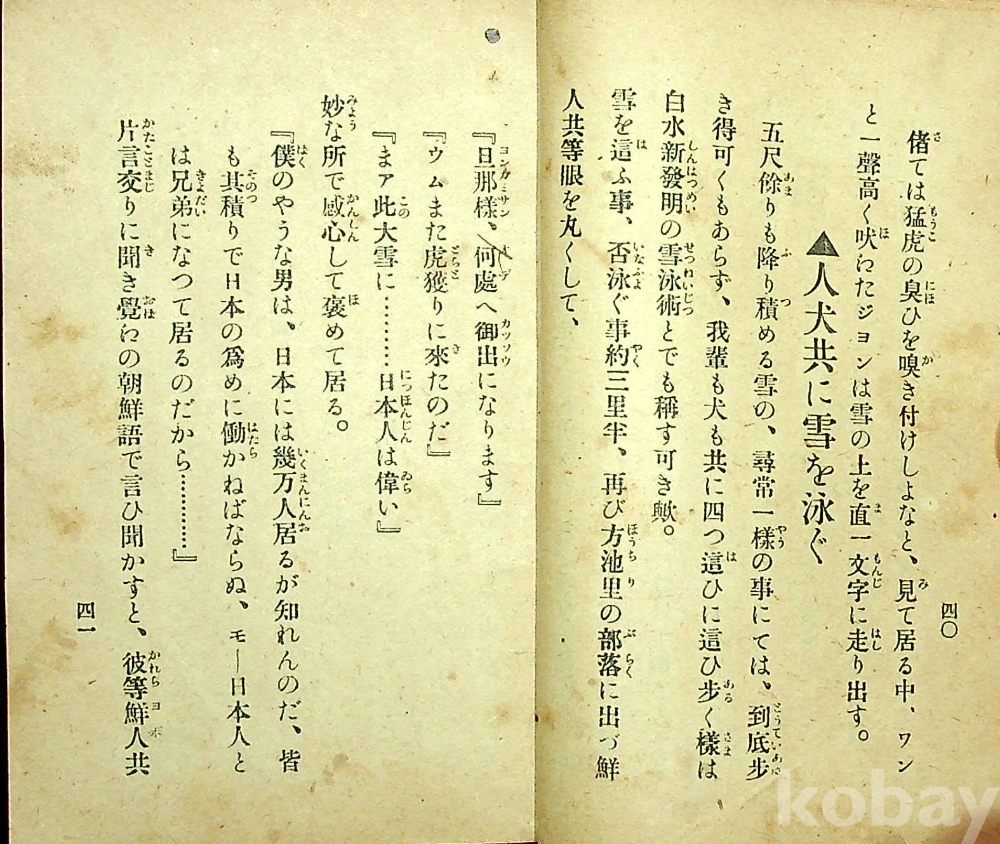 偖ては猛虎の臭ひを嗅き付けしよなと、見て居る中、ワン
と一聲高く吠ゐたジョンは雪の上を直一文字に走り出す。
▲人犬共に雪を泳ぐ
五尺餘りも降り積める雪の、尋常一樣の事にては、到底步
き得可くもあらず、我輩も犬も共に四つ這ひに這ひ步く樣は
白水新發明の雪泳術とでも稱す可き歟。
雪を這ふ事、否泳ぐ事約三里半、再び方池里の部落に出づ鮮
人共等眼を丸くして、
四〇
『旦那樣、何處へ御出になります』
『ウムまた虎獲りに來たのだ』
『まア此大雪に…………日本人は偉い』
妙な所で感心して褒めて居る。
『僕のやうな男は、日本には幾万人居るが知れんのだ、皆
も其積りで日本の爲めに働かねばならぬ、モー日本人と
は兄弟になつて居るのだから…………』
片言交りに聞き覺ゐの朝鮮語で言ひ聞かすと、彼等鮮人共
四一
kobay